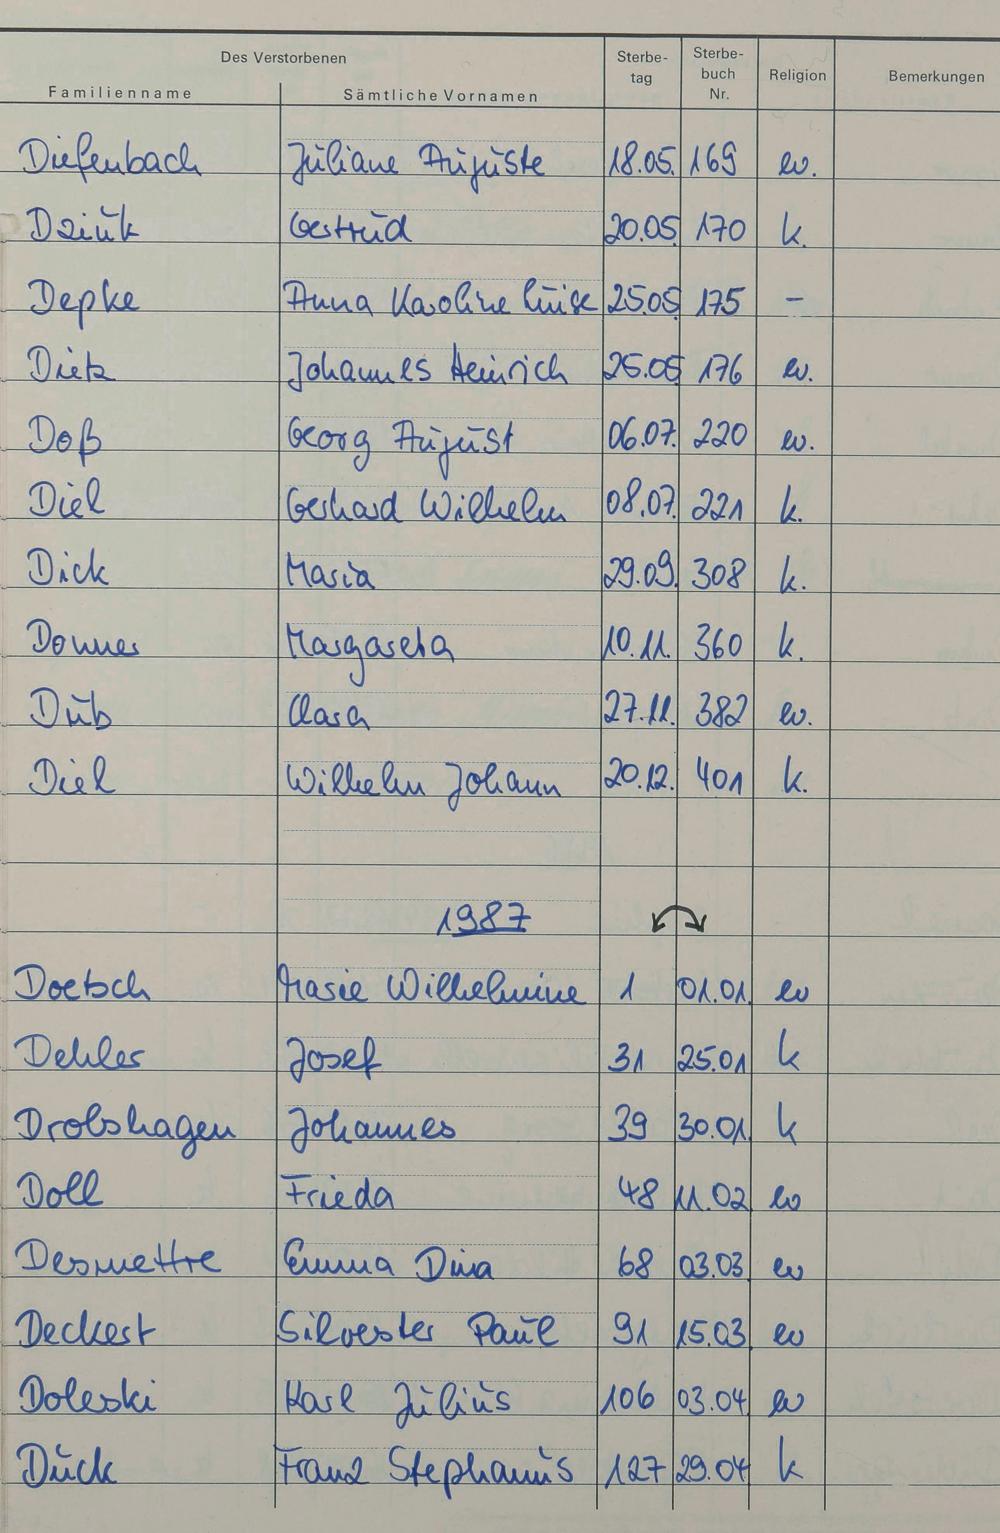 Des Verstorbenen
Familienname Sämtliche Vornamen Sterbe-tag Sterbe-buch Nr. Religion Bemerkungen
Diefenbach Juliane Auguste 18.05. 169 ev.
Dziuk Gertrud 20.05 170 k.
Depke Anna Karoline Luise 25.05 175 –
Dietz Johannes Heinrich 25.05 176 ev.
Doß Georg August 06.07. 220 ev.
Diel Gerhard Wilhelm 08.07. 221 k.
Dick Maria 29.09. 308 k.
Donner Margareta 10.11. 360 k.
Dub Clara 27.11. 382 ev.
Diel Wilhelm Johann 20.12. 401 k.
1987
Doetsch Marie Wilhelmine 1 01.01. ev
Dehler Josef 31 25.01 k
Drolshagen Johannes 39 30.01. k
Doll Frieda 48 11.02 ev
Desmettre Emma Dina 68 03.03 ev
Deckert Silvester Paul 91 15.03 ev
Doleski Karl Julius 106 03.04 ev
Duck Franz Stephanus 127 29.04 k